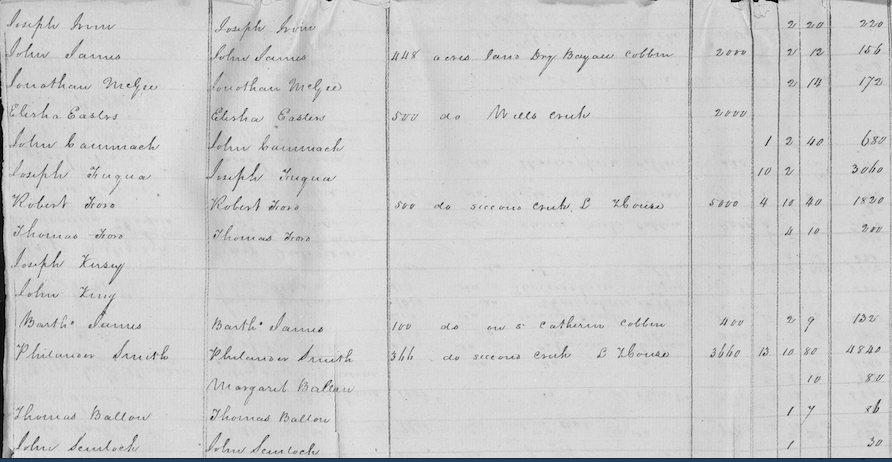 Joseph Irvin Joseph Irvin 2 20 220
John James John James 448 acres land Dry Bayau cobbin 2000 2 12 156
Jonathan McGee Jonathan McGee 2 14 172
Elisha Easters Elisha Easters 500 do Wells Creek 2000
John Cammack John Cammack 1 2 40 680
Joseph Fuqua Joseph Fuqua 10 2 3060
Robert Ford Robert Ford 500 do second creek L House 5000 4 10 40 1820
Thomas Ford Thomas Ford 4 10 200
Joseph Kersey
John King
Bartho James Bartho James 100 do on s catherin cobbin 400 2 9 132
Philander Smith Philander Smith 366 do second creek L House 3660 13 10 80 4840
Margaret Ballan 10 80
Thomas Ballon Thomas Ballon 1 7 86
John John 1 30